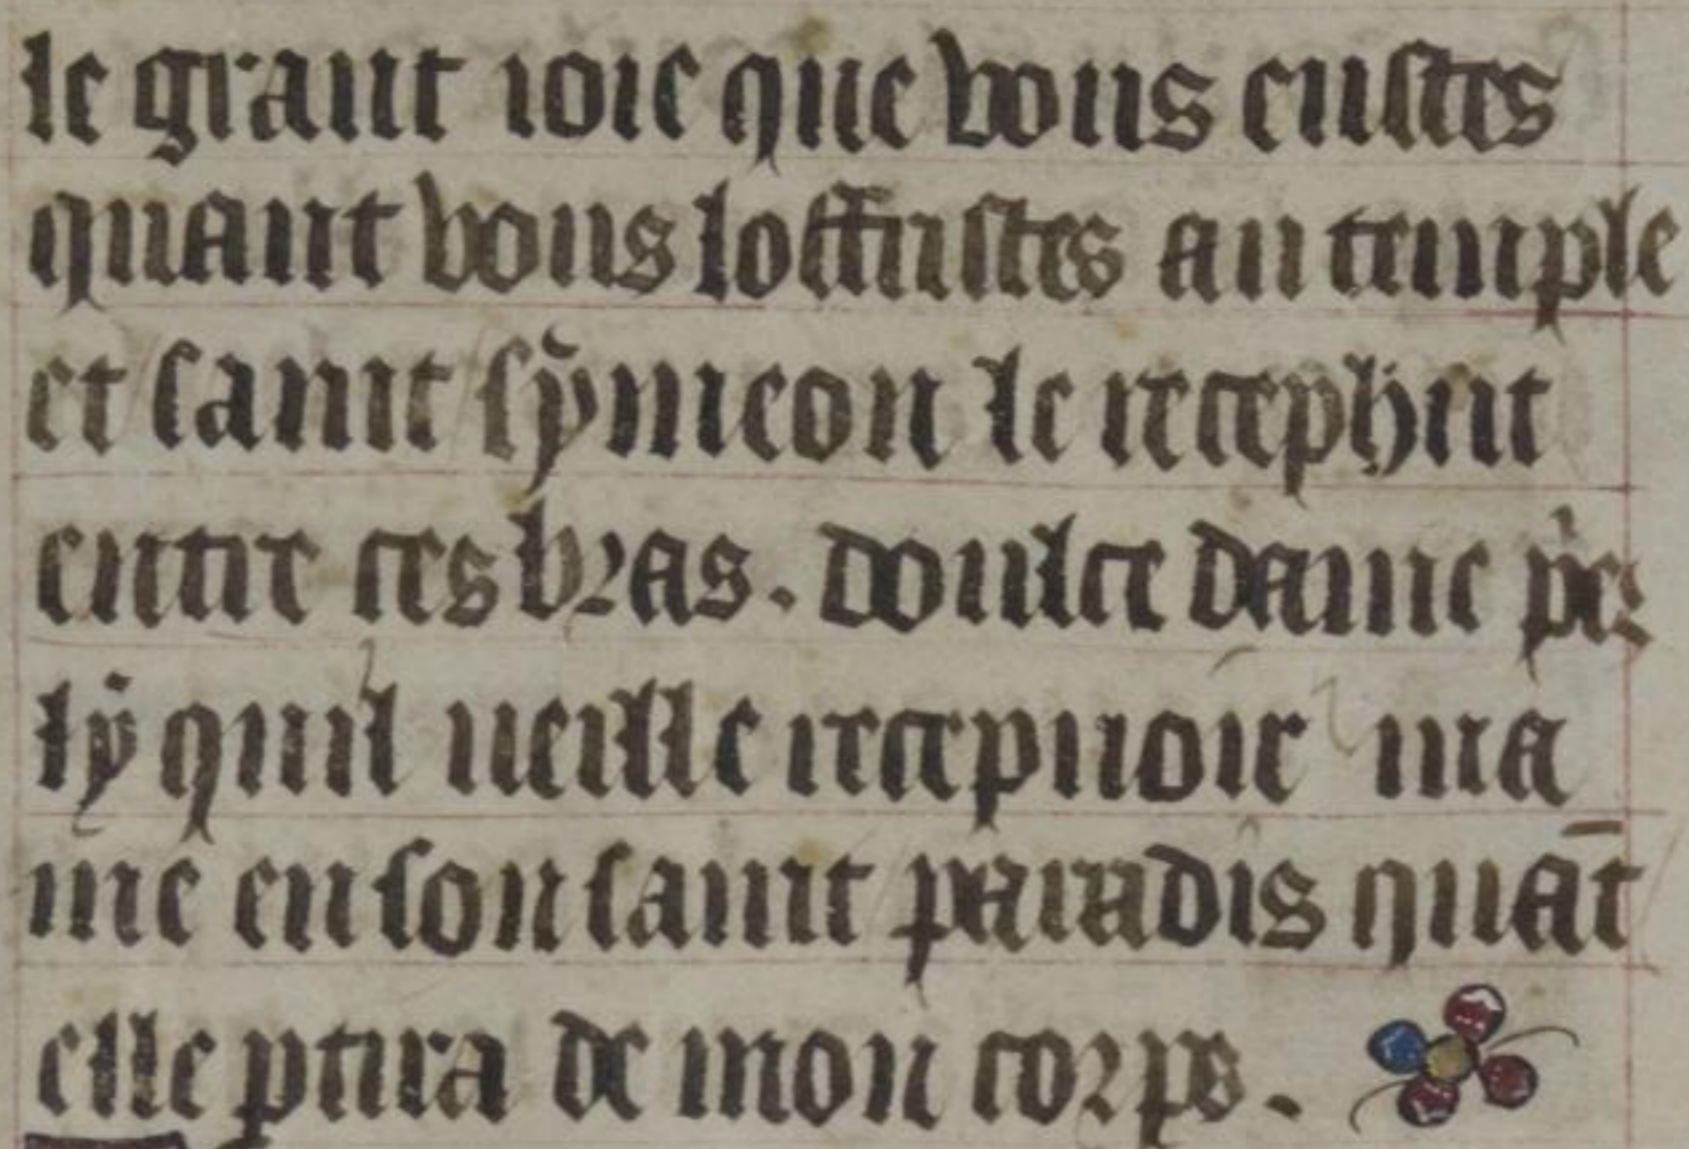 le grant ioie que vous eustes
quant vous loffristes au temple
et saint sẏmeon le recephut
entre ces bras. doulce dame pͥez
lẏ quil ueille recepuoir ma
me en son saint paradis quāt
elle ꝑtira de mon corps.